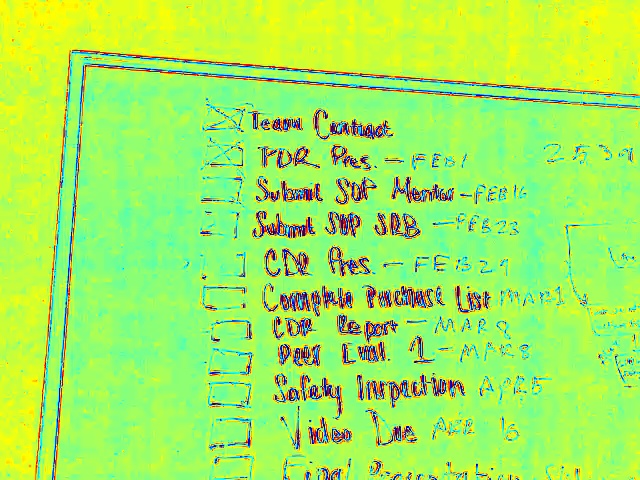 Team Contract
PDR Pres. - FEB 1
Submit SOP Mentor - FEB 16
Submit SOP SRB - FEB 23
CDR Pres. - FEB 29
Complete Purchase List MAR 1
CDR Report - MAR 8
Peer Eval. 1 - MAR 8
Safety Inspection APR 5
Video Due APR 16
Final Presentation